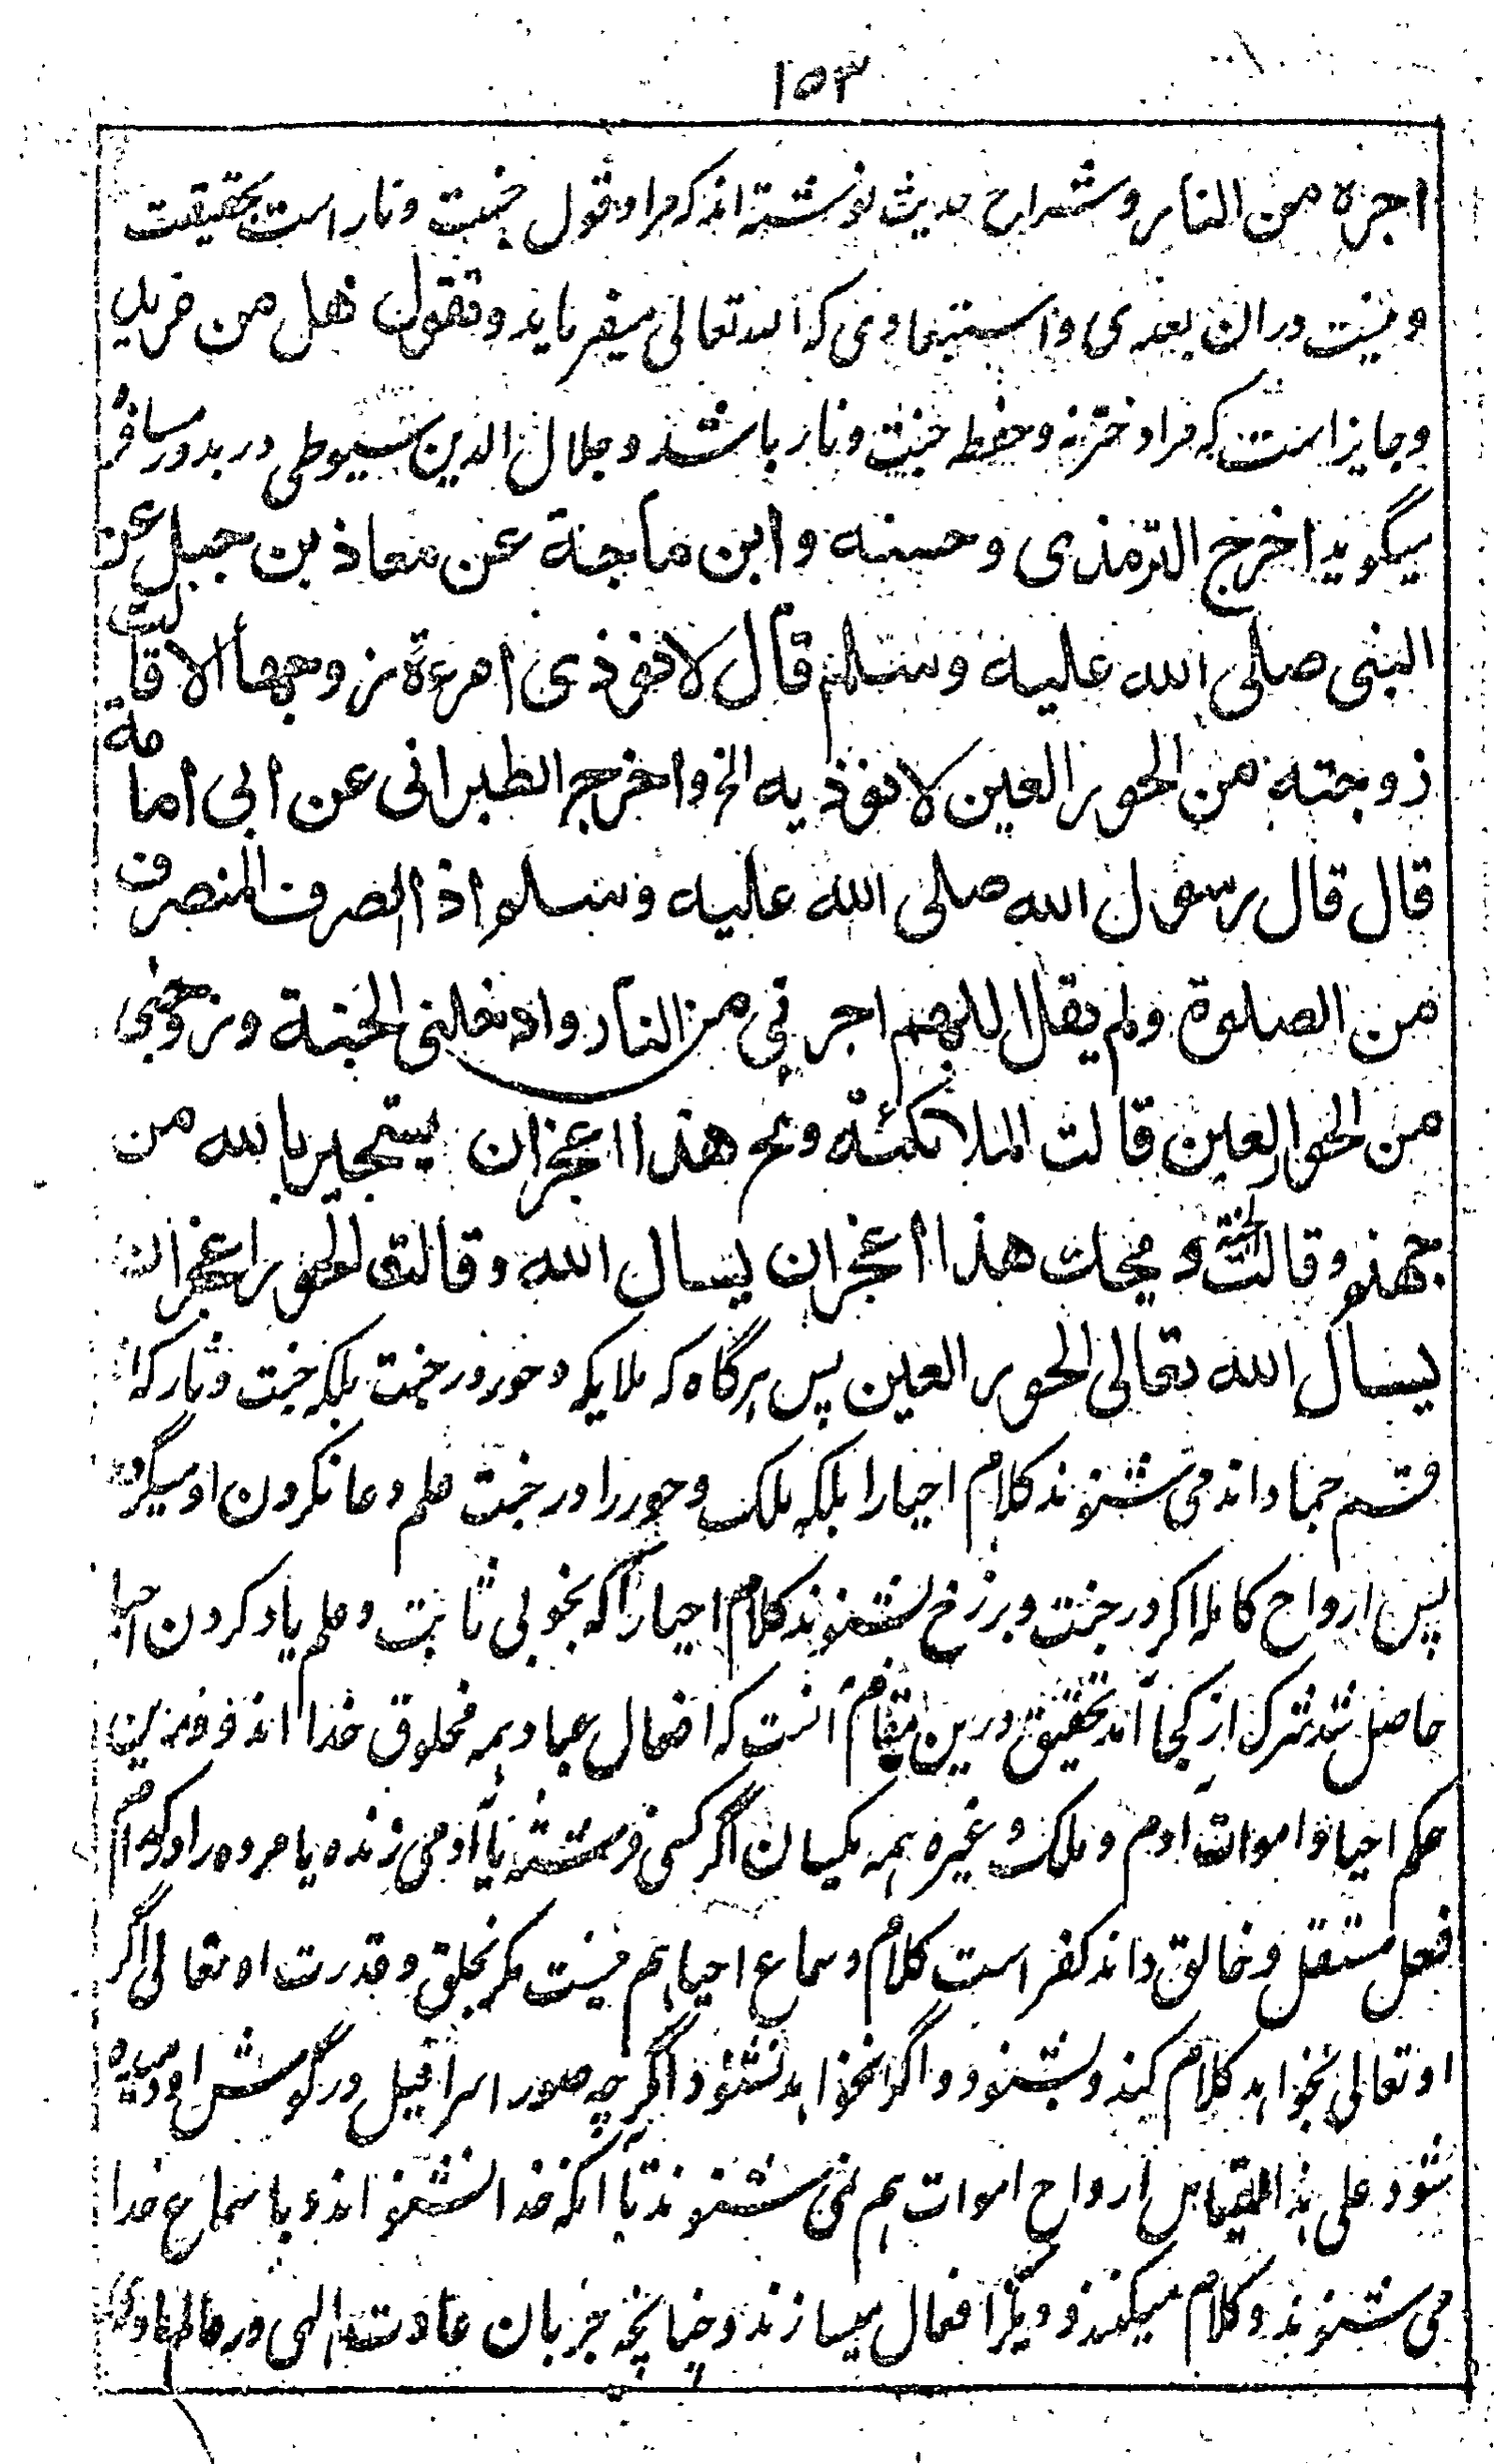 ۱۵۳
اجره من النار و شراح حدیث نوشته اند که مراد قول جنت و نار است بحقیقت
و نیست دران بعدی و استبعادی که الله تعالی میفرماید و تقول هل من مزید
و جایز است که مراد خزنه و حفظه جنت و نار باشد و جلال الدین سیوطی در بدور سافره
میگوید اخرج الترمذی و حسنه و ابن ماجة عن معاذ بن جبل عن
النبی صلی الله علیه وسلم قال لا توذی امرءة زوجها الا قالت
زوجته من الحور العین لا توذیه الخ واخرج الطبرانی عن ابی امامة
قال قال رسول الله صلی الله علیه وسلم اذا انصرف المنصرف
من الصلوة ولم یقل اللهم اجرنی من النار وادخلنی الجنة وزوجنی
من الحور العین قالت الملائکة ویح هذا اعجزان یستجیر بالله من
جهنم وقالت الجنة ویحک هذا اعجزان یسال الله وقالت الحور اعجزان
یسال الله تعالی الحور العین پس هرگاه که ملایکه و حور در جنت بلکه جنت و نار که از
قسم جماد اند می شنوند کلام احیارا بلکه ملک و حور را در جنت علم دعا نکردن او میگردد
پس ارواح کامله اگر در جنت و برزخ بشنوند کلام احیارا که بخوبی ثابت و علم یاد کردن احیا
حاصل شد شرک از کجا آمد تحقیق درین مقام آنست که افعال عباد همه مخلوق خدا اند و درین
حکم احیا و اموات آدم و ملک و غیره همه یکسان اگر کسی فرشته یا آدمی زنده یا مرده را در کدام
فعل مستقل و خالق داند کفر است کلام و سماع احیا هم نیست مگر بخلق و قدرت او تعالی اگر
او تعالی بخواهد کلام کند و بشنود و اگر نخواهد نشنود اگرچه صور اسرافیل در گوش او دمیده
شود علی هذا القیاس ارواح اموات هم نمی شنوند تا آنکه خدا نشنواند و باسماع خدا
می شنوند و کلام میکنند و دیگر افعال میسازند و چنانچه جریان عادت الهی در عالم